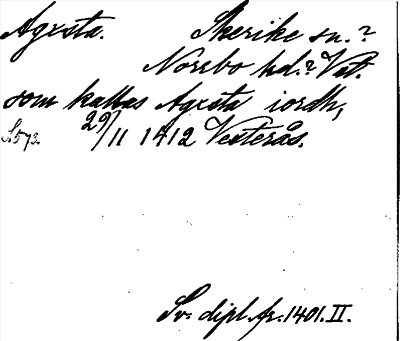 Agxsta. Skerike sn.?
Norrbo hd.? Vstl.
som kallas Agxsta iordh,
S. 573. 29/11 1412 Vesterås.
Sv. dipl. fr. 1401. II.